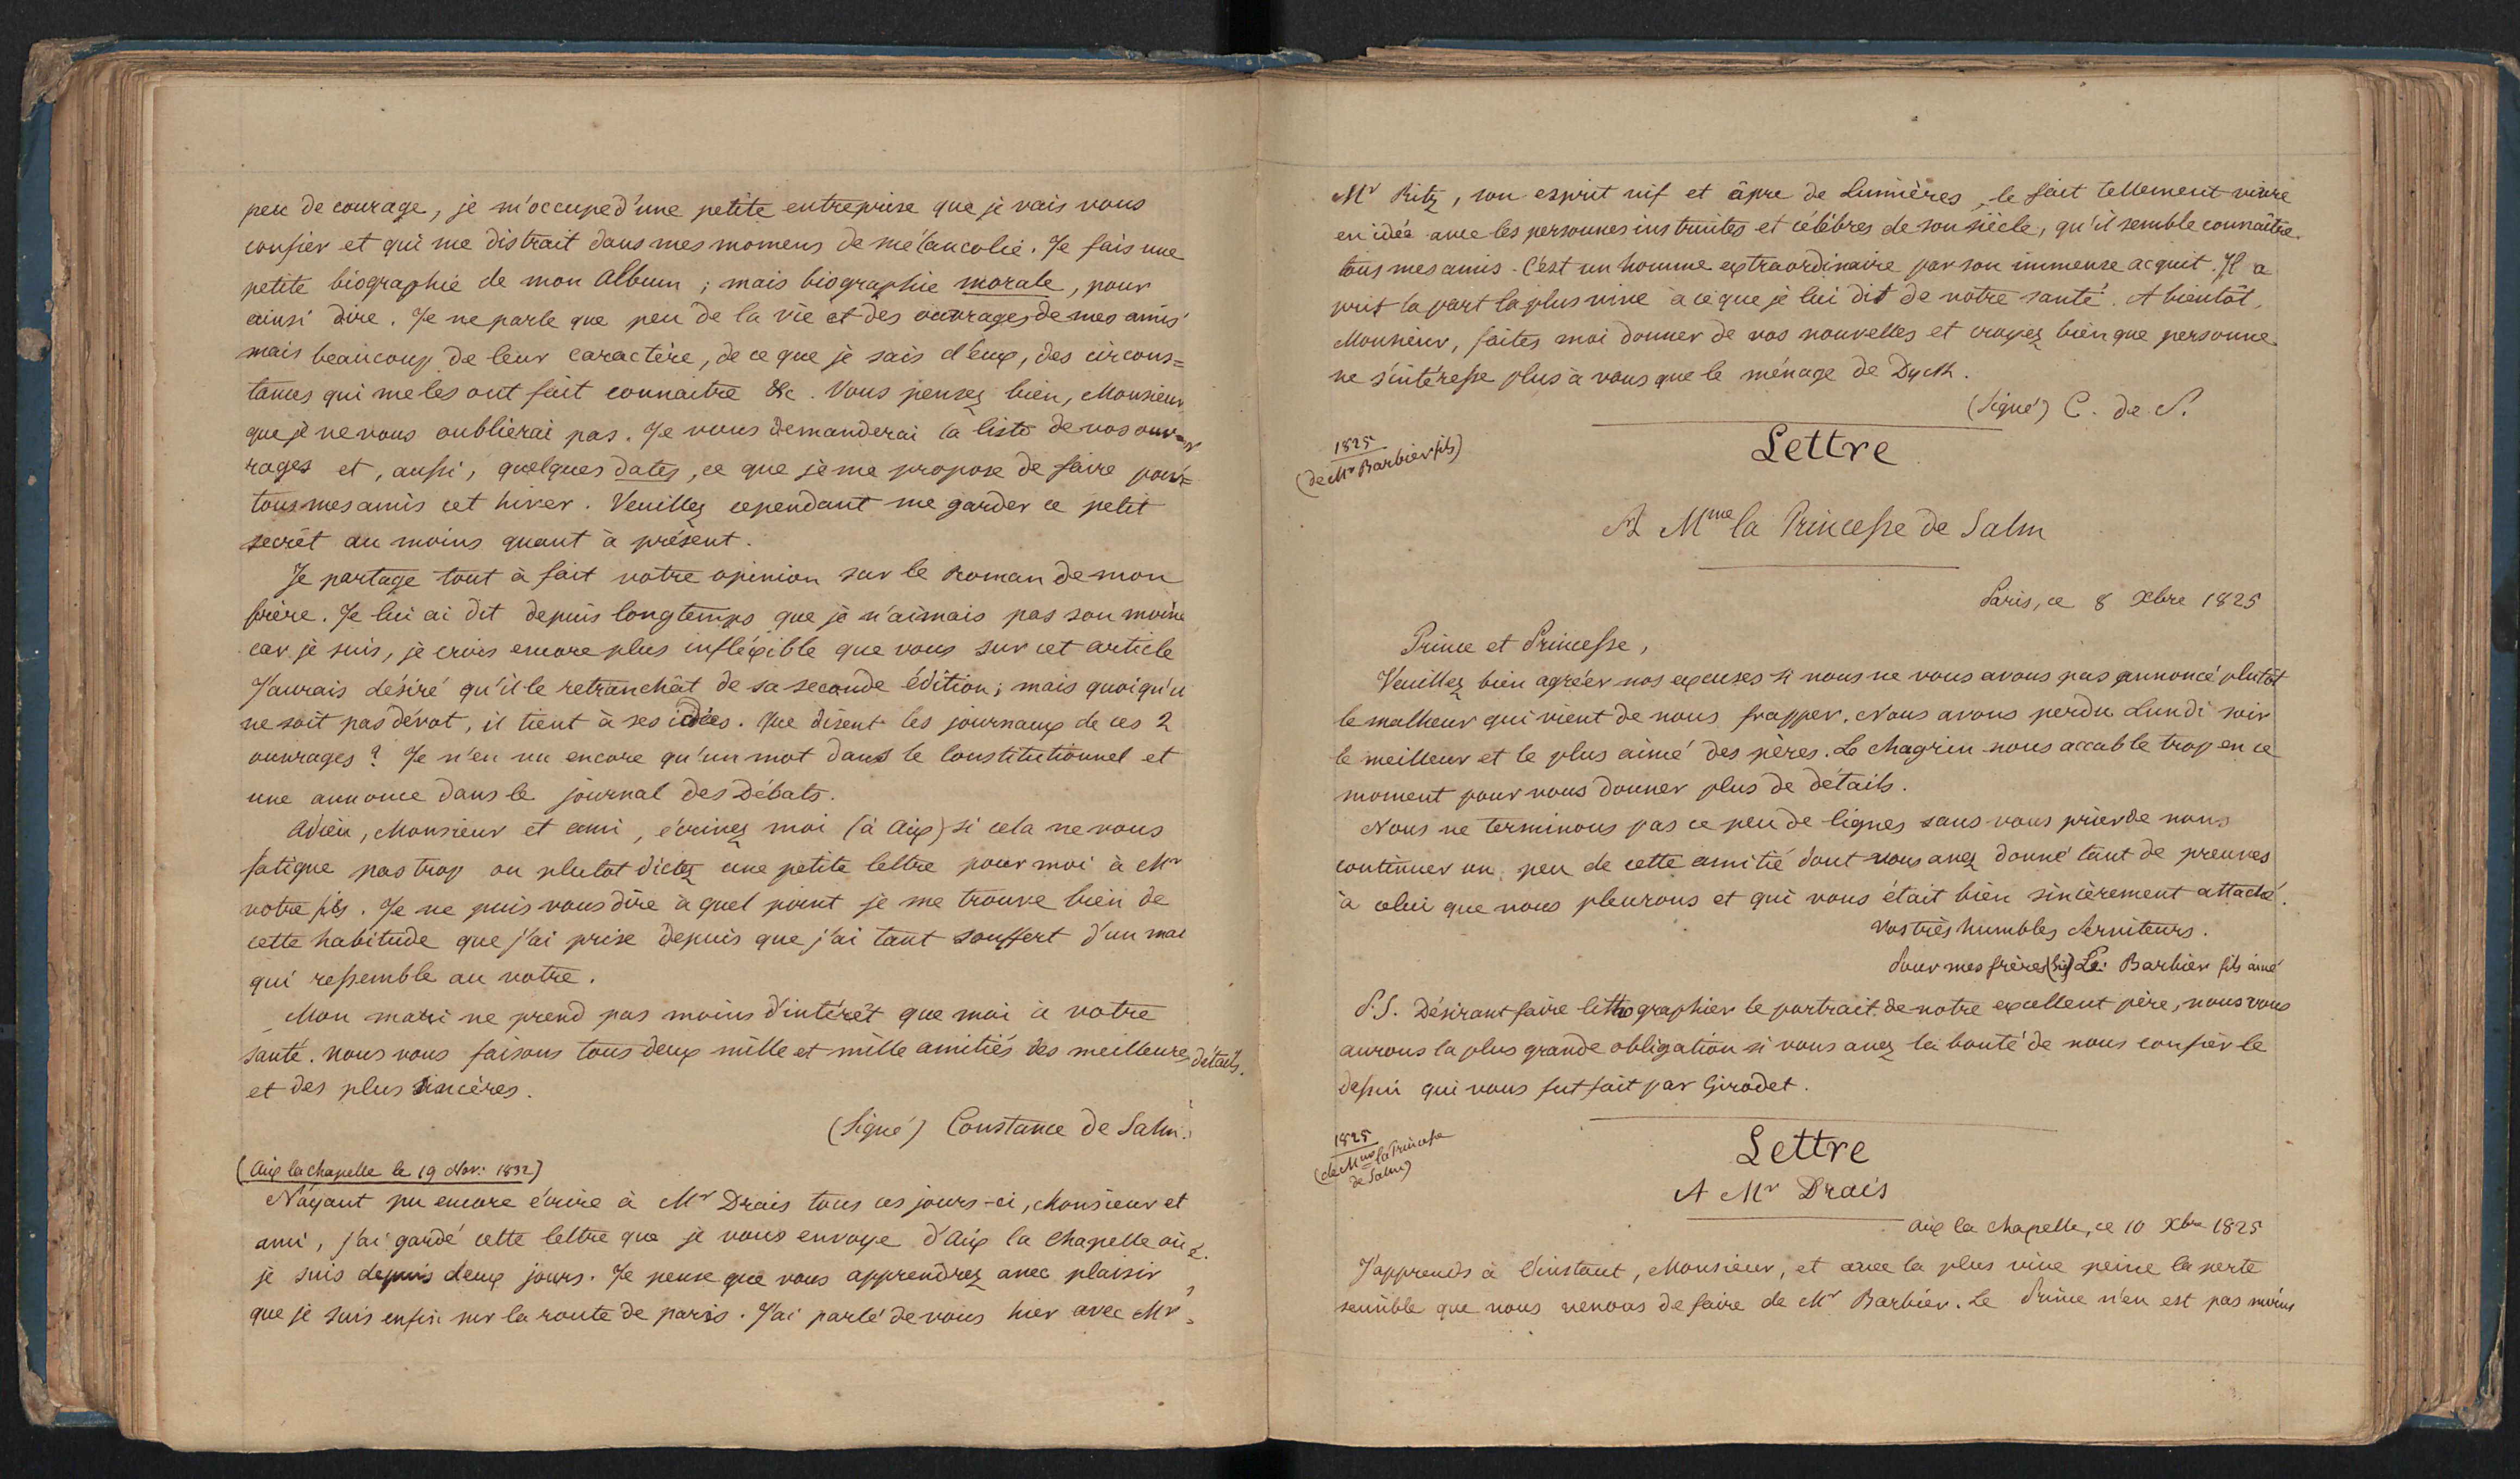 peu de courage, je m'occupe d'une petite entreprise que je vais vous
confier et qui me distrait dans mes momens de mélancolie. Je fais une
petite biographie de mon album ; mais biographie morale, pour
ainsi dire. Je ne parle que peu de la vie et des ouvrages de mes amis
mais beaucoup de leur caractère, de ce que je sais d'eux, des circons=
tances qui me les ont fait connaitre &c. Vous pensez bien, Monsieur
que je ne vous oublierai pas. Je vous demanderai la liste de vos ouv=
rages et, aussi, quelques dates, ce que je me propose de faire pour
tous mes amis cet hiver. Veuillez cependant me garder ce petit
secrèt au moins quant à présent.
Je partage tout à fait votre opinion sur le Roman de mon
frère. Je lui ai dit depuis longtemps que je n'aimais pas son moine
car je suis, je crois encore plus infléxible que vous sur cet article
J'aurais désiré qu'il le retranchât de sa seconde édition ; mais quoiqu'il
ne soit pas dévot, il tient à ses idées. Que disent les journaux de ces 2
ouvrages ? Je n'en vu encore qu'un mot dans le Constitutionnel et
une annonce dans le journal des Débats.
Adieu, Monsieur et ami, écrivez moi (à Aix) si cela ne vous
fatigue pas trop ou plutot dictez une petite lettre pour moi à Mr
votre fils. Je ne puis vous dire à quel point je me trouve bien de
cette habitude que j'ai prise depuis que j'ai tant souffert d'un mal
qui ressemble au votre.
Mon mari ne prend pas moins d'intérêt que moi à votre
santé. Nous vous faisons tous deux mille et mille amitiés des meilleures détails.
et des plus sincères.
(Signé) Constance de Salm.
(Aix la chapelle le 19 Nov: 1832)
N'ayant pu encore écrire à Mr Drais tous ces jours-ci, Monsieur et
ami, j'ai gardé cette lettre que je vous envoye d'Aix la Chapelle où
je suis depuis deux jours. Je pense que vous apprendrez avec plaisir
que je suis enfin sur la route de paris. J'ai parlé de vous hier avec Mr
Mr Ritz, son esprit vif et âpre de Lumières, le fait tellement vivre
en idée avec les personnes instruites et célèbres de son siècle, qu'il semble connaître
tous mes amis. C'est un homme extraordinaire par son immense acquit. Il a
prit la part la plus vive à ce que je lui dit de votre santé. A bientôt,
Monsieur, faites moi donner de vos nouvelles et croyez bien que personne
ne s'intéresse plus à vous que le ménage de Dyck.
(Signé) C. de S.
1825
(de Mr Barbier fils)
Lettre
A Mme la Princesse de Salm
Paris, ce 8 Xbre 1825
Prince et Princesse,
Veuillez bien agréer nos excuses si nous ne vous avons pas annoncé plutôt
le malheur qui vient de nous frapper. Nous avons perdu Lundi soir
le meilleur et le plus aimé des pères. Le chagrin nous accable trop en ce
moment pour vous donner plus de détails.
Nous ne terminons pas ce peu de lignes sans vous prier de nous
continuer un peu de cette amitié dont vous avez donné tant de preuves
à celui que nous pleurons et qui vous était bien sincèrement attaché.
Vos très humbles Serviteurs.
Pour mes frères (Sig) Le: Barbier fils ainé
P.S. Désirant faire lithographier le portrait de notre excellent père, nous vous
aurons la plus grande obligation si vous avez la bonté de nous confier le
dessin qui vous fut fait par Girodet.
1825
(de Mme la Princesse
de Salm)
Lettre
A Mr Drais
Aix la Chapelle, ce 10 Xbre 1825
J'apprends à l'instant, Monsieur, et avec la plus vive peine la perte
sensible que nous venons de faire de Mr Barbier. Le Prince n'en est pas moins